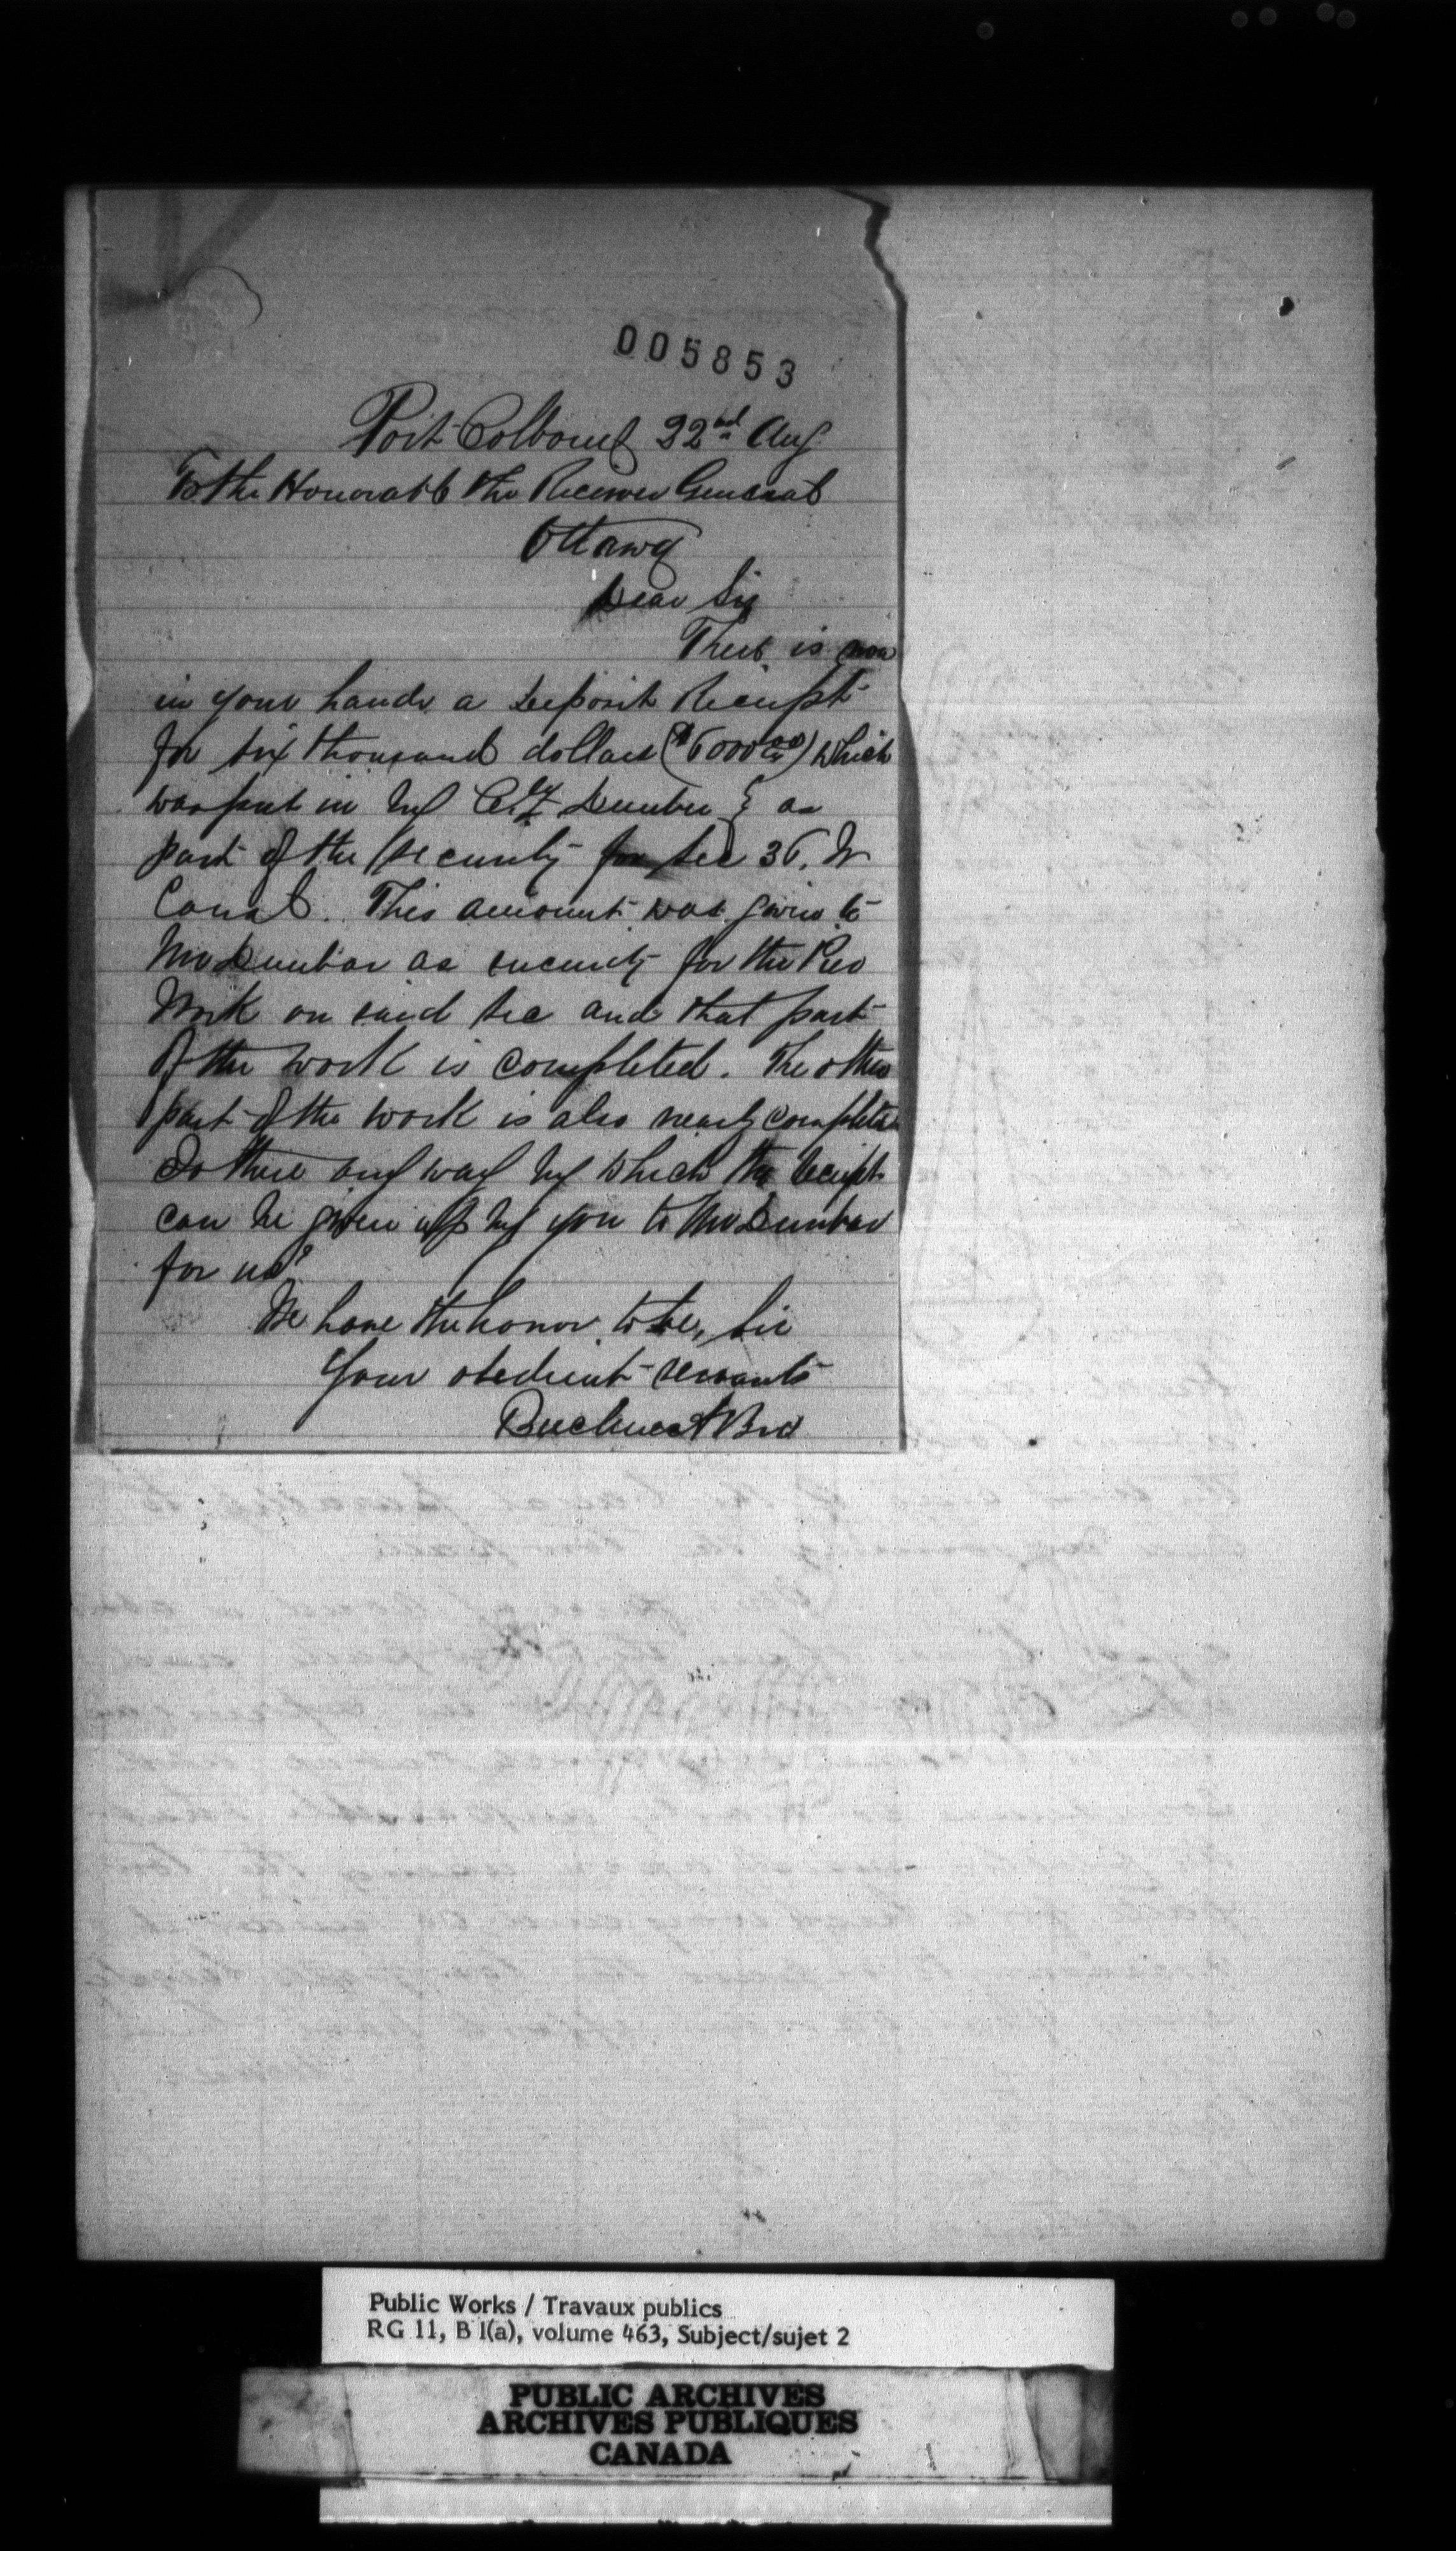 005853
Port Colborne 22nd Aug
To the Honorable the Receiver General
Ottawa
Dear Sir
There is now
in your hands a Deposit Receipt
for six thousand dollars ($6000 00/xx) which
was put in by C. Dunbar as
part of the security for Sec 36. W
Canal. This amount was given to
Mr Dunbar as security for the Pier
Work on said Sec and that part
of the work is completed. The other
part of the work is also nearly completed
Is there any way by which the Receipt
can be given up by you to Mr Dunbar
for us?
We have the honor to be, Sir
Your obedient servants
Bro
Public Works / Travaux publics
RG 11, B 1(a), volume 463, Subject/sujet 2
PUBLIC ARCHIVES
ARCHIVES PUBLIQUES
CANADA